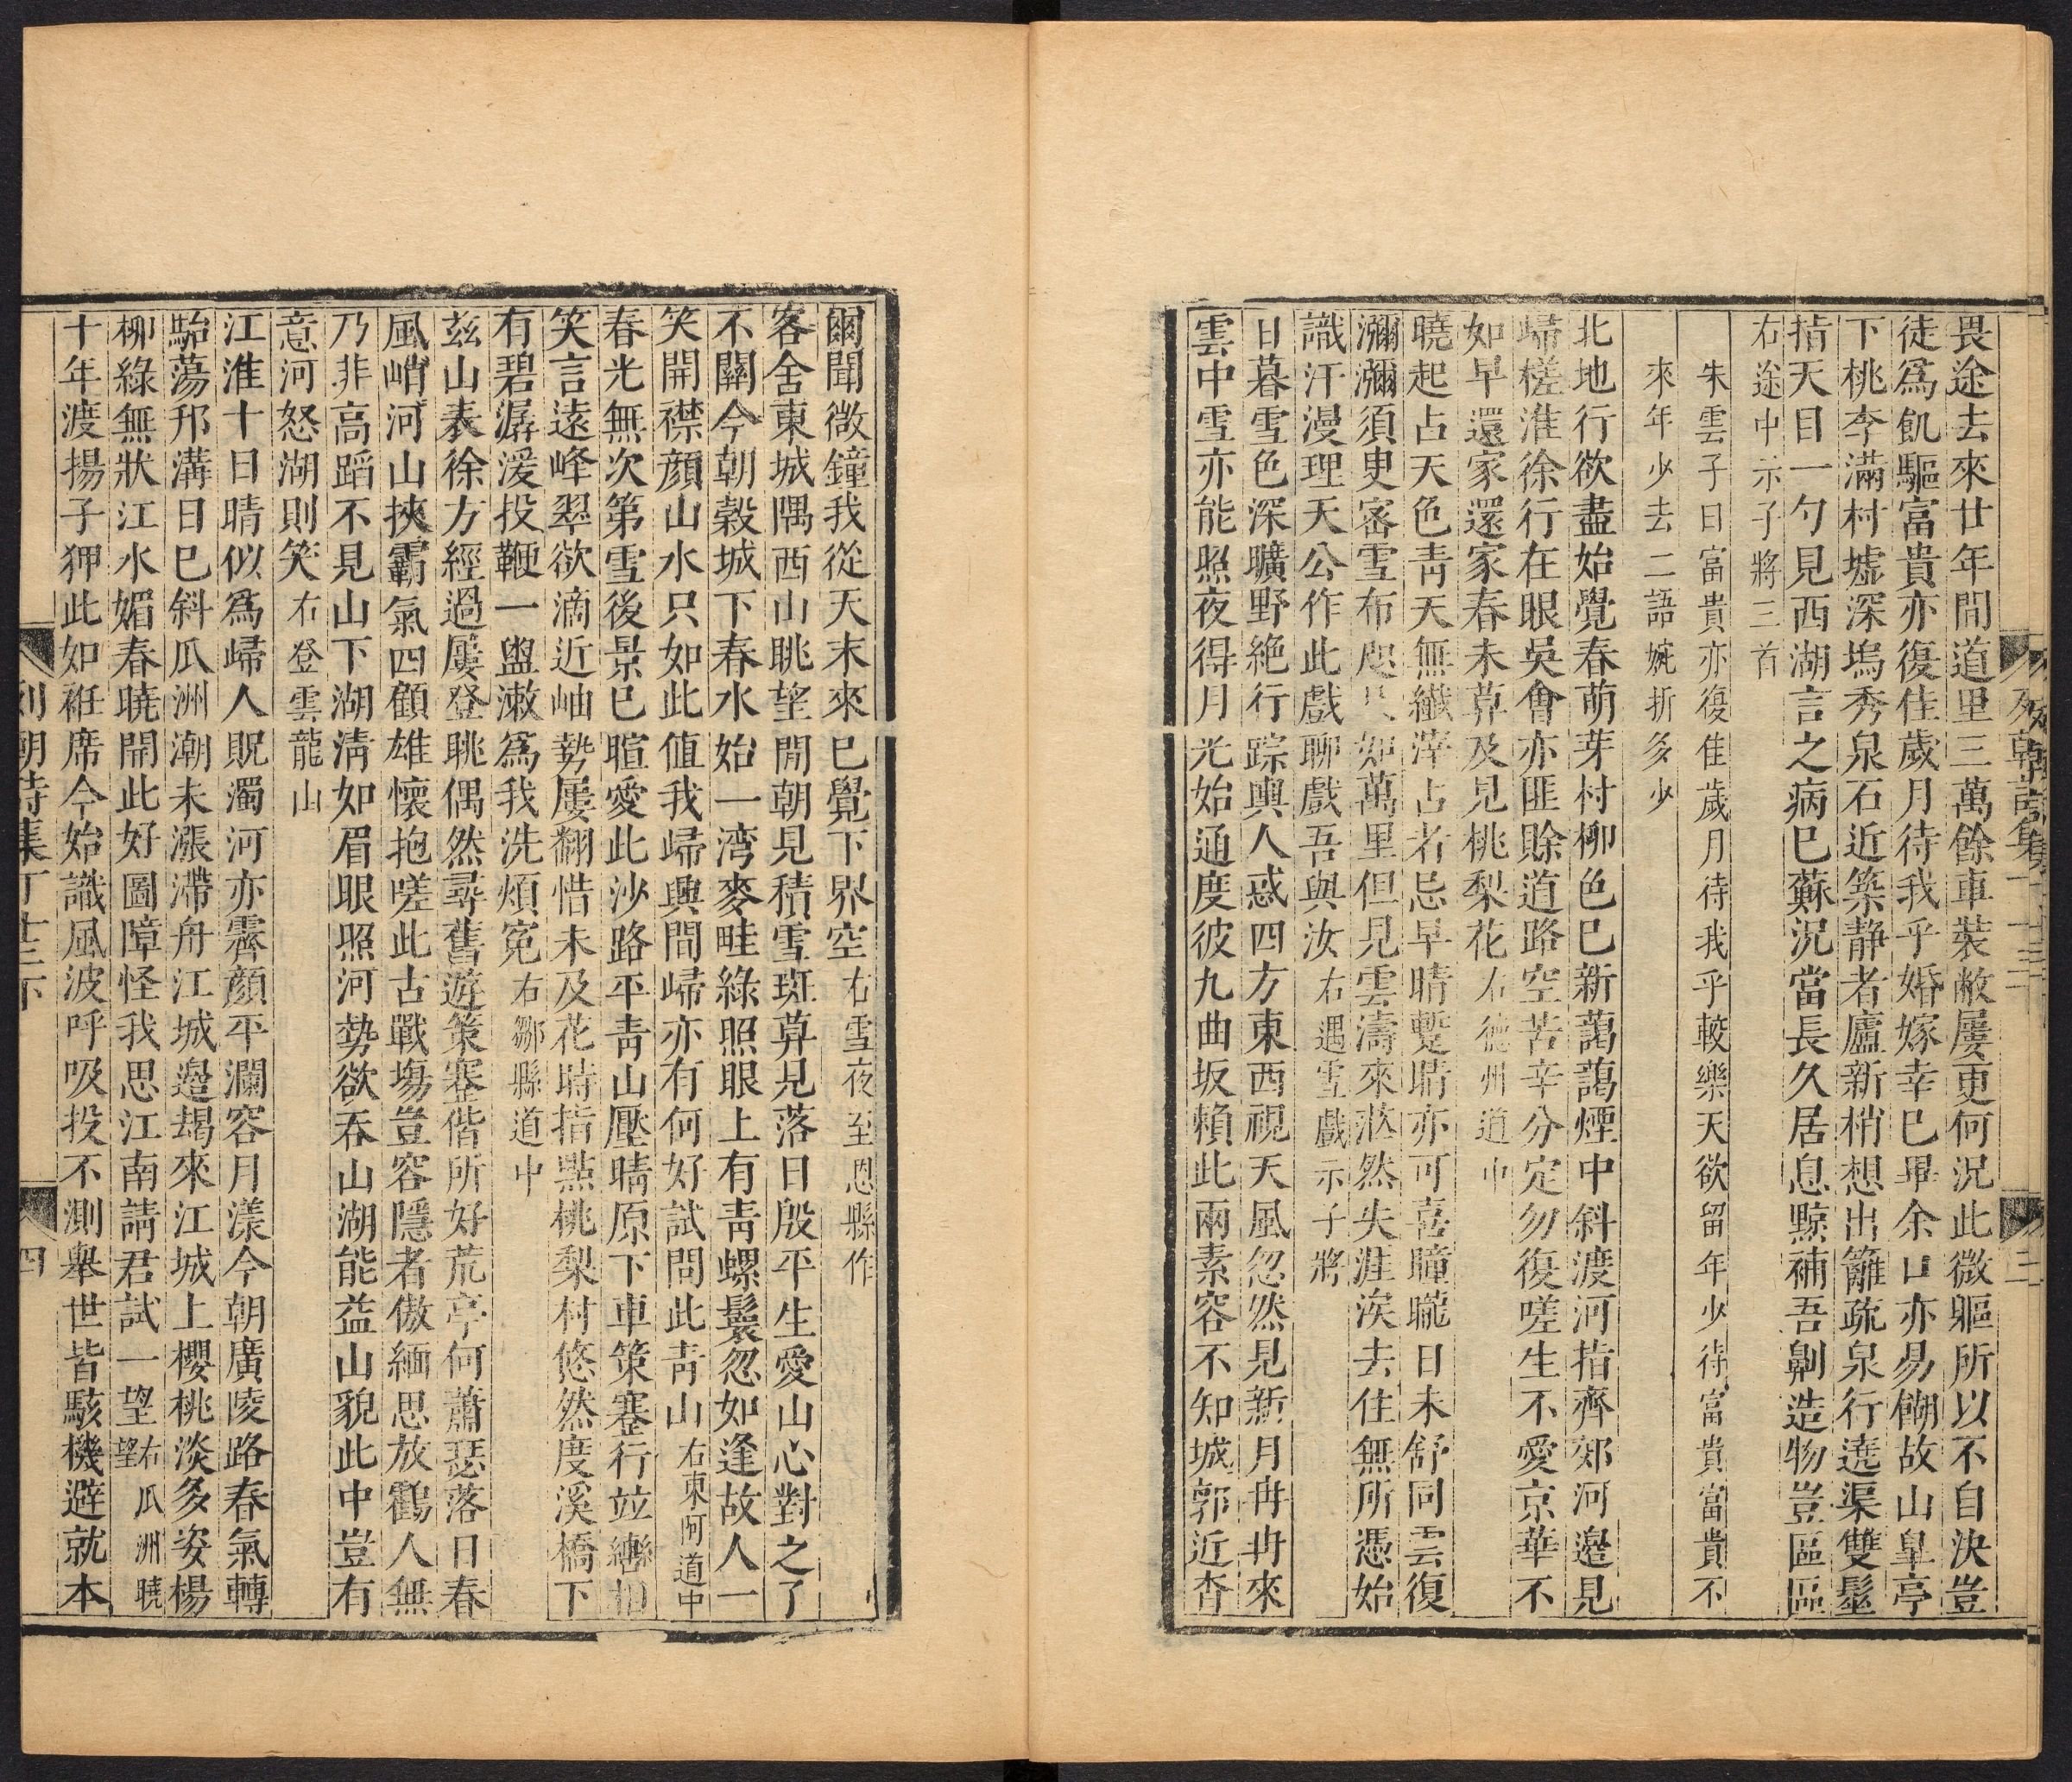 畏途去來廿年間道里三萬餘車裝敝屢更何況此微軀所以不自決豈
徒爲飢驅富貴亦復佳歲月待我乎婚嫁幸已畢余口亦易餬故山皐亭
下桃李滿村墟深塢秀泉石近築静者廬新梢想出籬疏泉行遶渠雙髽
指天目一勺見西湖言之病已蘇況當長久居息黥補吾劓造物豈區區
右途中示子將三首
朱雲子曰富貴亦復佳歲月待我乎較樂天欲留年少待富貴富貴不
來年少去二語婉折多少
北地行欲盡始覺春萌芽村柳色已新藹藹煙中斜渡河指齊郊河邉見
歸槎淮徐行在眼吳會亦匪賒道路空苦辛分定勿復嗟生不愛京華不
如早還家還家春未莫及見桃梨花右德州道中
曉起占天色靑天無纖滓占者忌早晴蹔晴亦可喜瞳曨日未舒同雲復
瀰瀰須臾密雪布咫尺如萬里但見雲濤來茫然失涯涘去住無所憑始
識汗漫理天公作此戲聊戲吾與汝右遇雪戲示子將
日暮雪色深曠野絶行踪輿人惑四方東西視天風忽然見新月冉冉來
雲中雪亦能照夜得月光始通度彼九曲坂賴此兩素容不知城郭近杳
列朝詩集丁十三下
三
爾聞微鐘我從天末來已覺下界空右雪夜至恩縣作
客舍東城隅西山眺望閒朝見積雪斑莫見落日殷平生愛山心對之了
不關今朝榖城下春水始一湾麥畦綠照眼上有靑螺鬟忽如逢故人一
笑開襟顔山水只如此値我歸輿間歸亦有何好試問此靑山右東阿道中
春光無次第雪後景已暄愛此沙路平靑山壓晴原下車策蹇行竝轡相
笑言遠峰翠欲滴近岫勢屢翻惜未及花時指點桃梨村悠然度溪橋下
有碧潺湲投鞭一盥漱爲我洗煩寃右鄒縣道中
玆山表徐方經過屢登眺偶然尋舊遊策蹇偕所好荒亭何蕭瑟落日春
風峭河山挾霸氣四顧雄懷抱嗟此古戰塲豈容隱者傲緬思放鶴人無
乃非高蹈不見山下湖淸如眉眼照河勢欲吞山湖能益山貌此中豈有
意河怒湖則笑右登雲龍山
江淮十日晴似爲歸人貺濁河亦霽顔平瀾容月漾今朝廣陵路春氣轉
駘蕩邗溝日已斜瓜洲潮未漲滯舟江城邉朅來江城上櫻桃淡多姿楊
柳綠無狀江水媚春曉開此好圖障怪我思江南請君試一望右瓜洲曉望
十年渡揚子狎此如袵席今始識風波呼吸投不測舉世皆駭機避就本
列朝詩集丁十三下
四